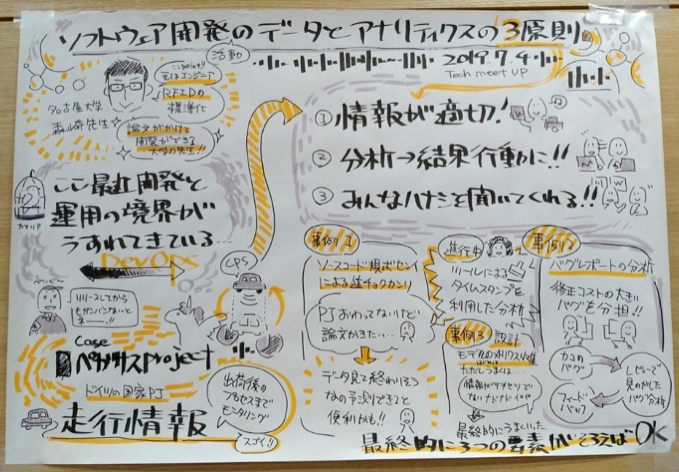 ソフトウェア開発のデータとアナリティクスの3原則
活動
2019.7.4
Tech meet UP
ここpoint!!
元はエンジニア
RFIDの
標準化
名古屋大学
森崎先生
論文がかけて
開発ができる
大学の先生!!
① 情報が適切!
② 分析→結果行動に!!
③ みんなハナシを聞いてくれる!!
カナリア
ここ最近開発と
運用の境界が
うすれてきている
DevOps
CPS
リリースしてから
Case
ペガサスproject
ドイツの国家PJ
走行情報
出荷後の
プロセスまで
モニタリング
スゴイ!!
事例1
ソースコード
による進チョクカンリ
PJおわってないけど
論文かきたい…
データ見て終わりそう
なの予測できてると
便利かも!!
進行中
ツールによる
タイムスタンプを
利用した分析
事例3
設計
モデルのメトリクス
情報が
でない
最終的にうまくいった
事例2
バグレポートの分析
修正コストの大きい
バグを分担!!
カコの
バグ
レビューで
見のがした
バグ分析
フィード
バック
最終的に3つの要素がそろえばOK